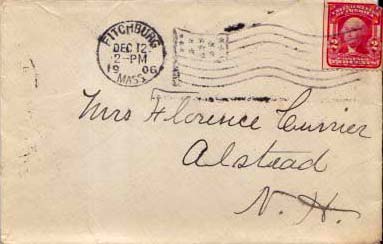 FITCHBURG
DEC 12
2-PM
1906
MASS.
Mrs Florence Currier
Alstead
N. H.